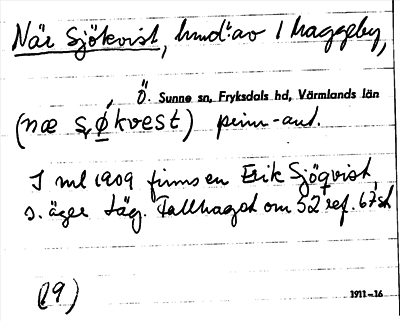 När Sjökvist, hmd:t av 1 Haggeby,
Ö. Sunne sn, Fryksdals hd, Värmlands län
(næ s̩ǿkvest) pers.-ant.
I ml 1909 finns en Erik Sjöqvist
s. äger läg. Tallhaget om 52 ref. 67 st
(19)
1911–16